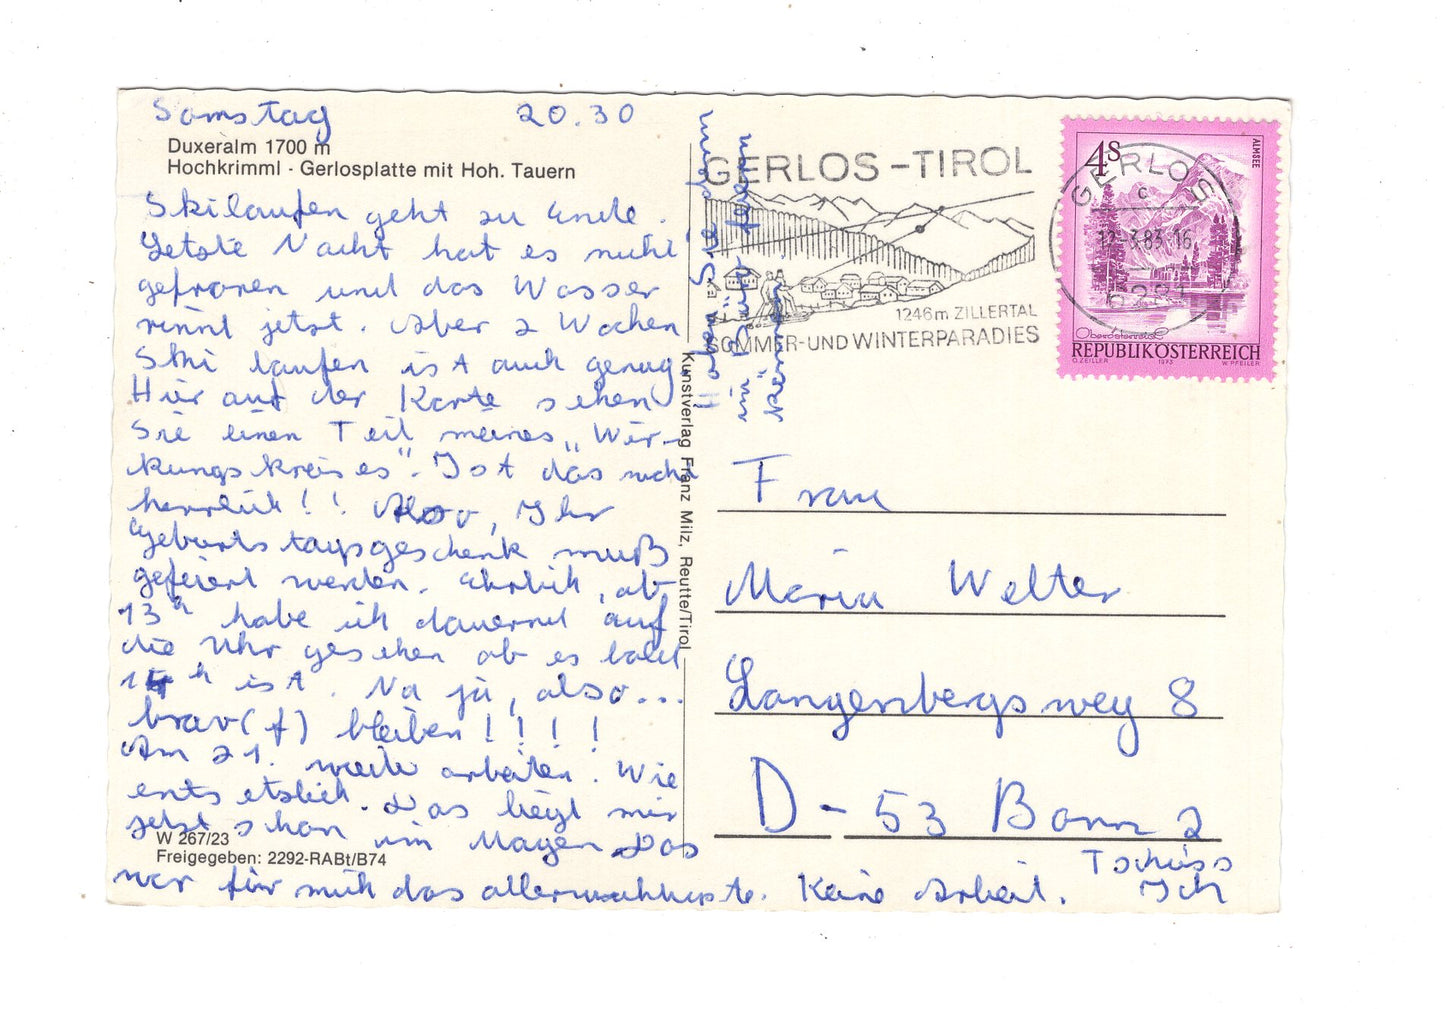 Samstag 20.30
Duxeralm 1700 m
Hochkrimml · Gerlosplatte mit Hoh. Tauern
Skilaufen geht zu Ende.
Letzte Nacht hat es nicht
gefroren und das Wasser
rinnt jetzt. Aber 2 Wochen
Ski laufen ist auch genug
Hier auf der Karte sehen
Sie einen Teil meines „Wir-
kungskreises". Ist das nicht
herrlich!! Also, Ihr
Geburtstagsgeschenk muß
gefeiert werden. Ehrlich, ab
13h habe ich dauernd auf
die Uhr gesehen ob es bald
14h ist. Na ja, also...
brav(f) bleiben!!!!
Am 21. wieder arbeiten. Wie
entsetzlich. Das liegt mir
jetzt schon im Magen. Das
war für mich das allerwichtigste. Keine Arbeit.
Tschüss
Ich
Hoffen Sie
im Büro
W 267/23
Freigegeben: 2292-RABt/B74
Kunstverlag Franz Milz, Reutte/Tirol
GERLOS-TIROL
1246m ZILLERTAL
SOMMER-UND WINTERPARADIES
GERLOS
c
12.-3.83-16
6281
4S
ALMSEE
Oberösterreich
REPUBLIK ÖSTERREICH
O.ZEILLER 1973 W.PFEILER
Frau
Maria Welter
Langenbergsweg 8
D-53 Bonn 2